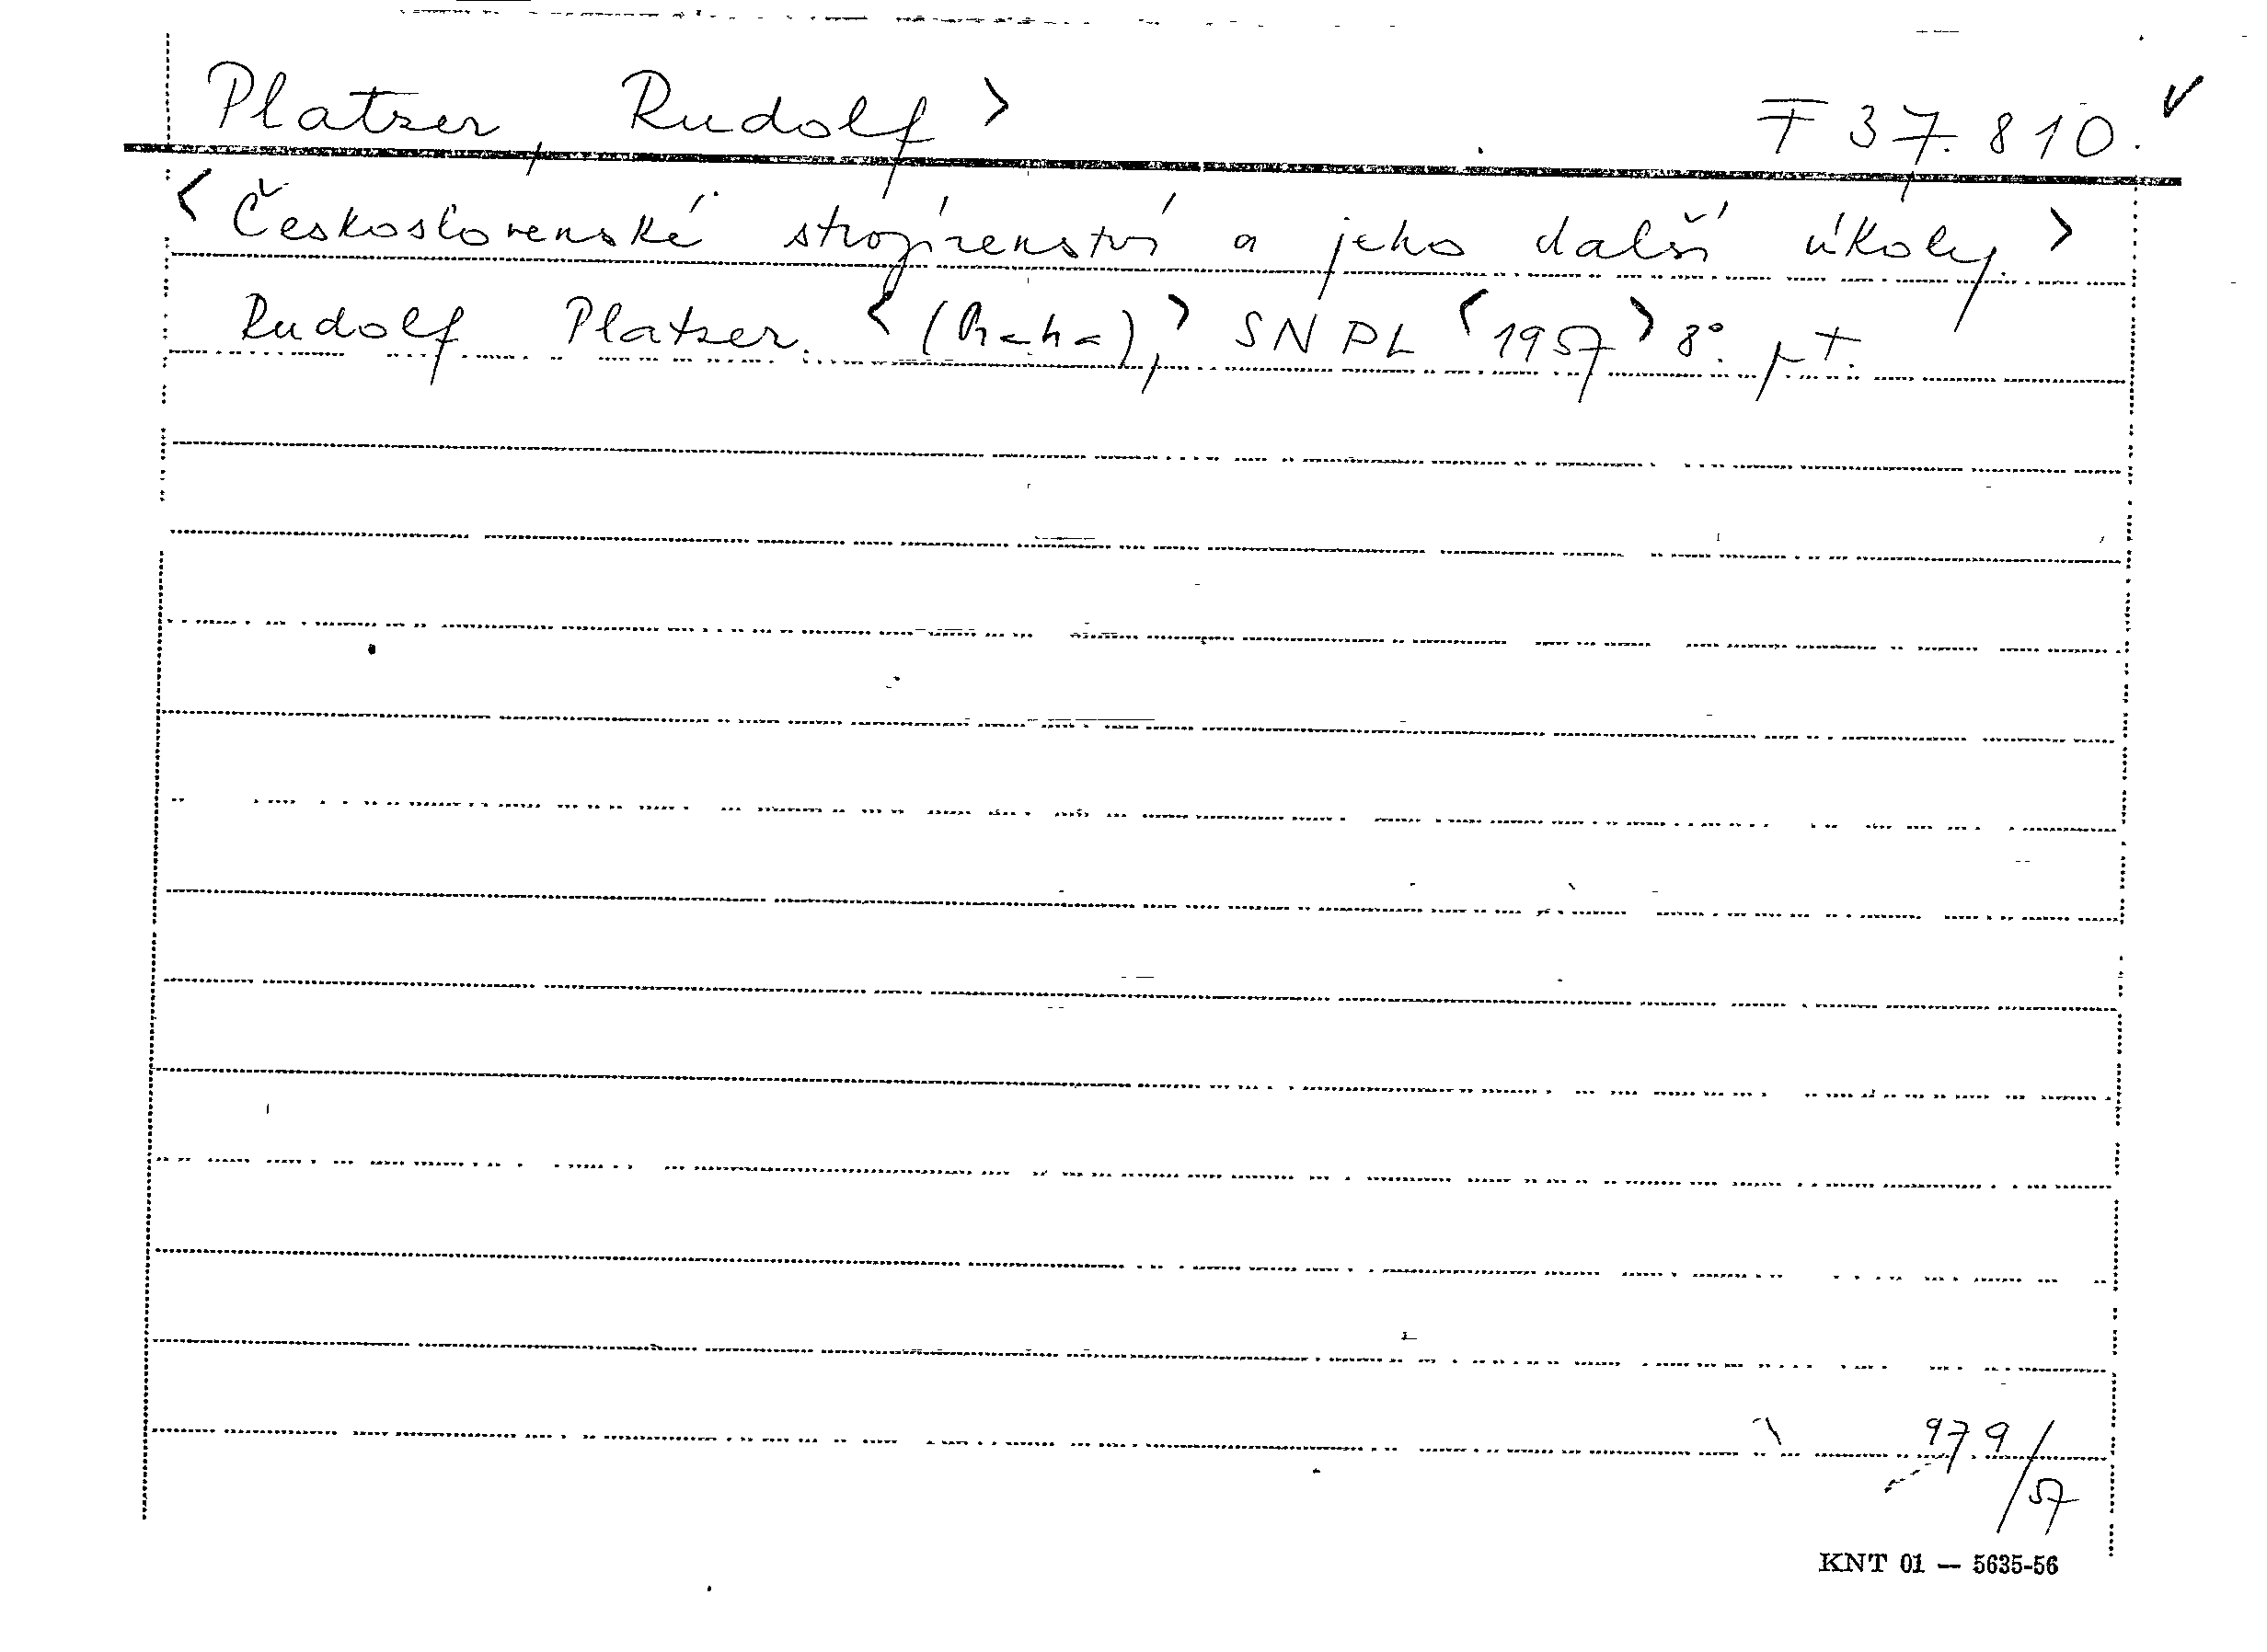 Platzer, Rudolf > F 37.810. ✓
< Československé strojírenství a jeho další úkoly. >
Rudolf Platzer. < (Praha), > SNPL < 1957 > 8°.
979/57
KNT 01 — 5635-56